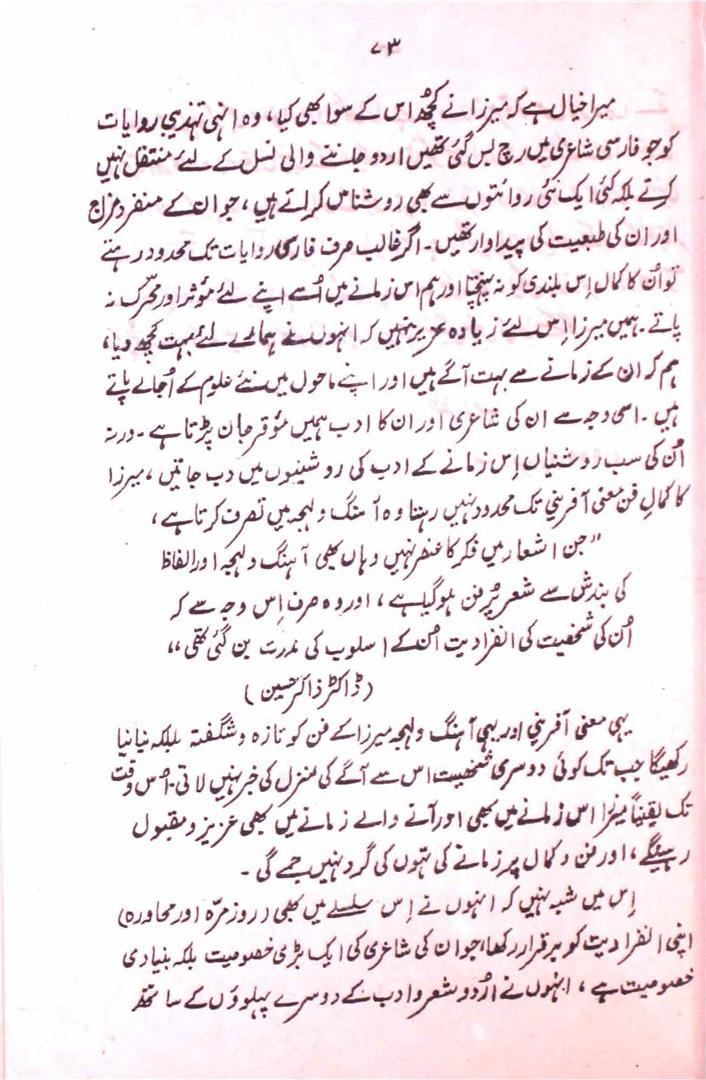 ۷۳
میرا خیال ہے کہ میرزا نے کچھ اس کے سوا بھی کیا، وہ انہی تہذیبی روایات
کو جو فارسی شاعری میں رچ بس گئی تھیں اردو جاننے والی نسل کے لئے منتقل نہیں
کرتے بلکہ کئی ایک نئی روائتوں سے بھی روشناس کراتے ہیں، جو ان کے منفرد مزاج
اور ان کی طبعیت کی پیداوار تھیں۔ اگر غالب صرف فارسی روایات تک محدود رہتے
تو اُن کا کمال اِس بلندی کو نہ پہنچتا اور ہم اس زمانے میں اُسے اپنے لئے مؤثر اور محرّک نہ
پاتے۔ ہمیں میرزا اِس لئے زیادہ عزیز نہیں کہ انہوں نے ہمارے لئے بہت کچھ دیا،
ہم کہ ان کے زمانے سے بہت آگے ہیں اور اپنے ماحول میں نئے علوم کے اُجالے پاتے
ہیں۔ اسی وجہ سے ان کی شاعری اور ان کا ادب ہمیں مؤقر جان پڑتا ہے۔ ورنہ
اُن کی سب روشنیاں اِس زمانے کے ادب کی روشنیوں میں دب جاتیں، میرزا
کا کمالِ فن معنی آفرینی تک محدود نہیں رہتا وہ آہنگ و لہجہ میں تصرف کرتا ہے،
”جن اشعار میں فکر کا عنصر نہیں وہاں بھی آہنگ و لہجہ اور الفاظ
کی بندش سے شعر پُر فن ہو گیا ہے، اور وہ صرف اِس وجہ سے کہ
اُن کی شخصیت کی انفرادیت اُن کے اسلوب کی ندرت بن گئی تھی“
(ڈاکٹر ذاکر حسین)
یہی معنی آفرینی اور یہی آہنگ و لہجہ میرزا کے فن کو تازہ و شگفتہ بلکہ نیا نیا
رکھیگا جب تک کوئی دوسری شخصیت اس سے آگے کی منزل کی خبر نہیں لاتی۔ اُس وقت
تک یقیناً میرزا اس زمانے میں بھی اور آنے والے زمانے میں بھی عزیز و مقبول
رہینگے، اور فن و کمال پر زمانے کی تہوں کی گرد نہیں جمے گی۔
اِس میں شبہ نہیں کہ انہوں نے اِس سلسلے میں بھی (روز مرّہ اور محاورہ)
اپنی انفرادیت کو برقرار رکھا، جو ان کی شاعری کی ایک بڑی خصوصیت بلکہ بنیادی
خصوصیت ہے، انہوں نے اُردو شعر و ادب کے دوسرے پہلوؤں کے ساتھ